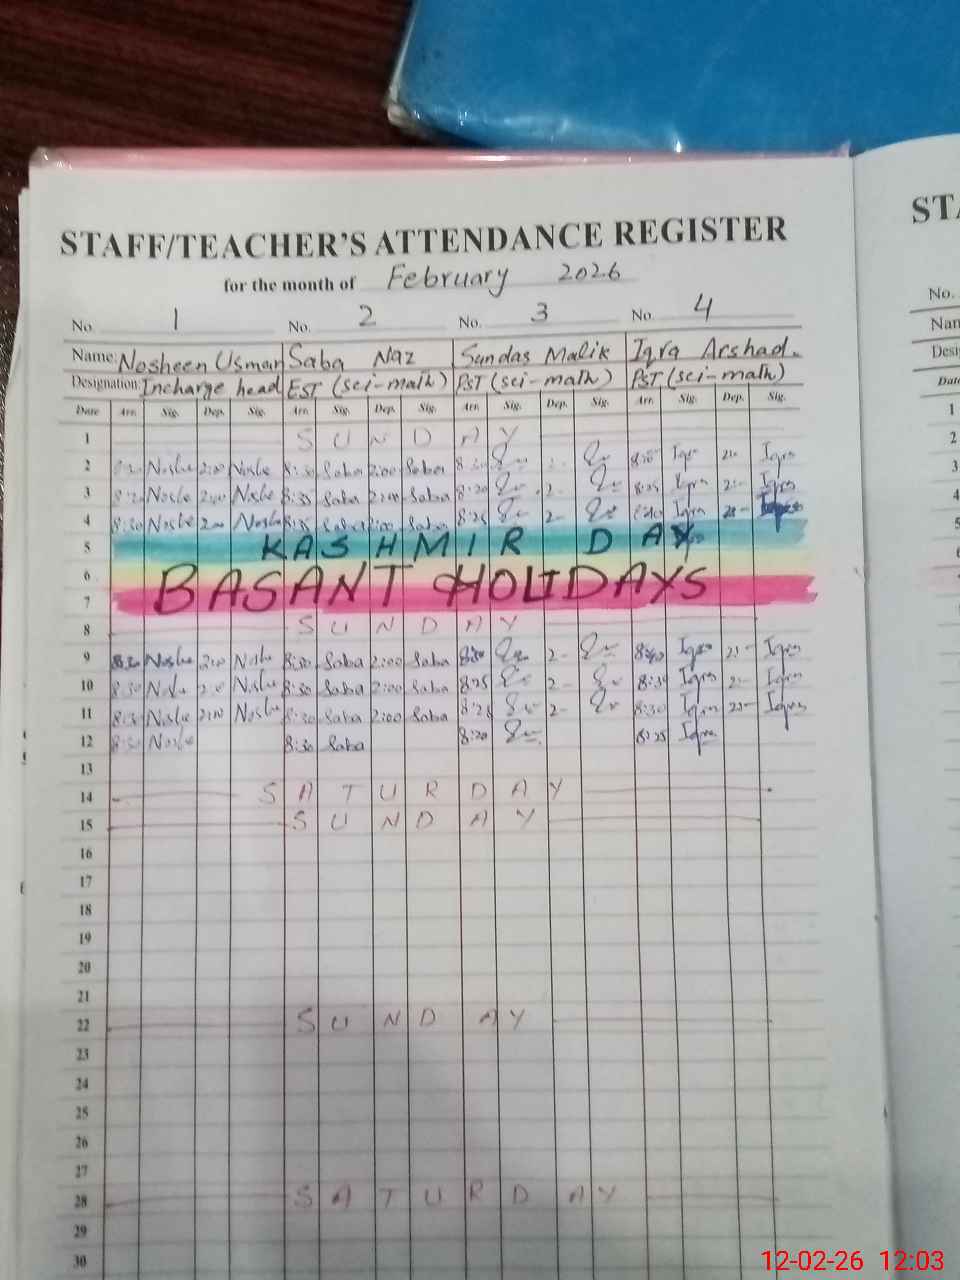 STAFF/TEACHER'S ATTENDANCE REGISTER
for the month of February 2026
No. 1 No. 2 No. 3 No. 4
Name: Nosheen Usman Saba Naz Sundas Malik Iqra Arshad.
Designation: Incharge head EST (sci-math) PST (sci-math) PST (sci-math)
Date Arr. Sig. Dep. Sig. Arr. Sig. Dep. Sig. Arr. Sig. Dep. Sig. Arr. Sig. Dep. Sig.
1 SUNDAY
2 Noshe 2:00 Noshe 8:30 Saba 2:00 Saba Iqra Iqra
3 Noshe Noshe 8:35 Saba 2:00 Saba 8:20 2- 8:25 Iqra Iqra
4 8:30 Noshe Noshe 8:35 Saba 2:00 Saba 8:25 2- Iqra
5 KASHMIR DAY
6 BASANT HOLIDAYS
7
8 SUNDAY
9 8:30 Noshe 8:30 Saba 2:00 Saba 2- Iqra Iqra
10 8:30 Noshe 8:30 Saba 2:00 Saba 8:25 2- 8:30 Iqra Iqra
11 8:30 Noshe 2:00 Noshe 8:30 Saba 2:00 Saba 2- 8:30 Iqra Iqra
12 8:30 Noshe 8:30 Saba 8:20 8:25 Iqra
13
14 SATURDAY
15 SUNDAY
16
17
18
19
20
21
22 SUNDAY
23
24
25
26
27
28 SATURDAY
29
30
No.
1
2
3
4
5
12-02-26 12:03